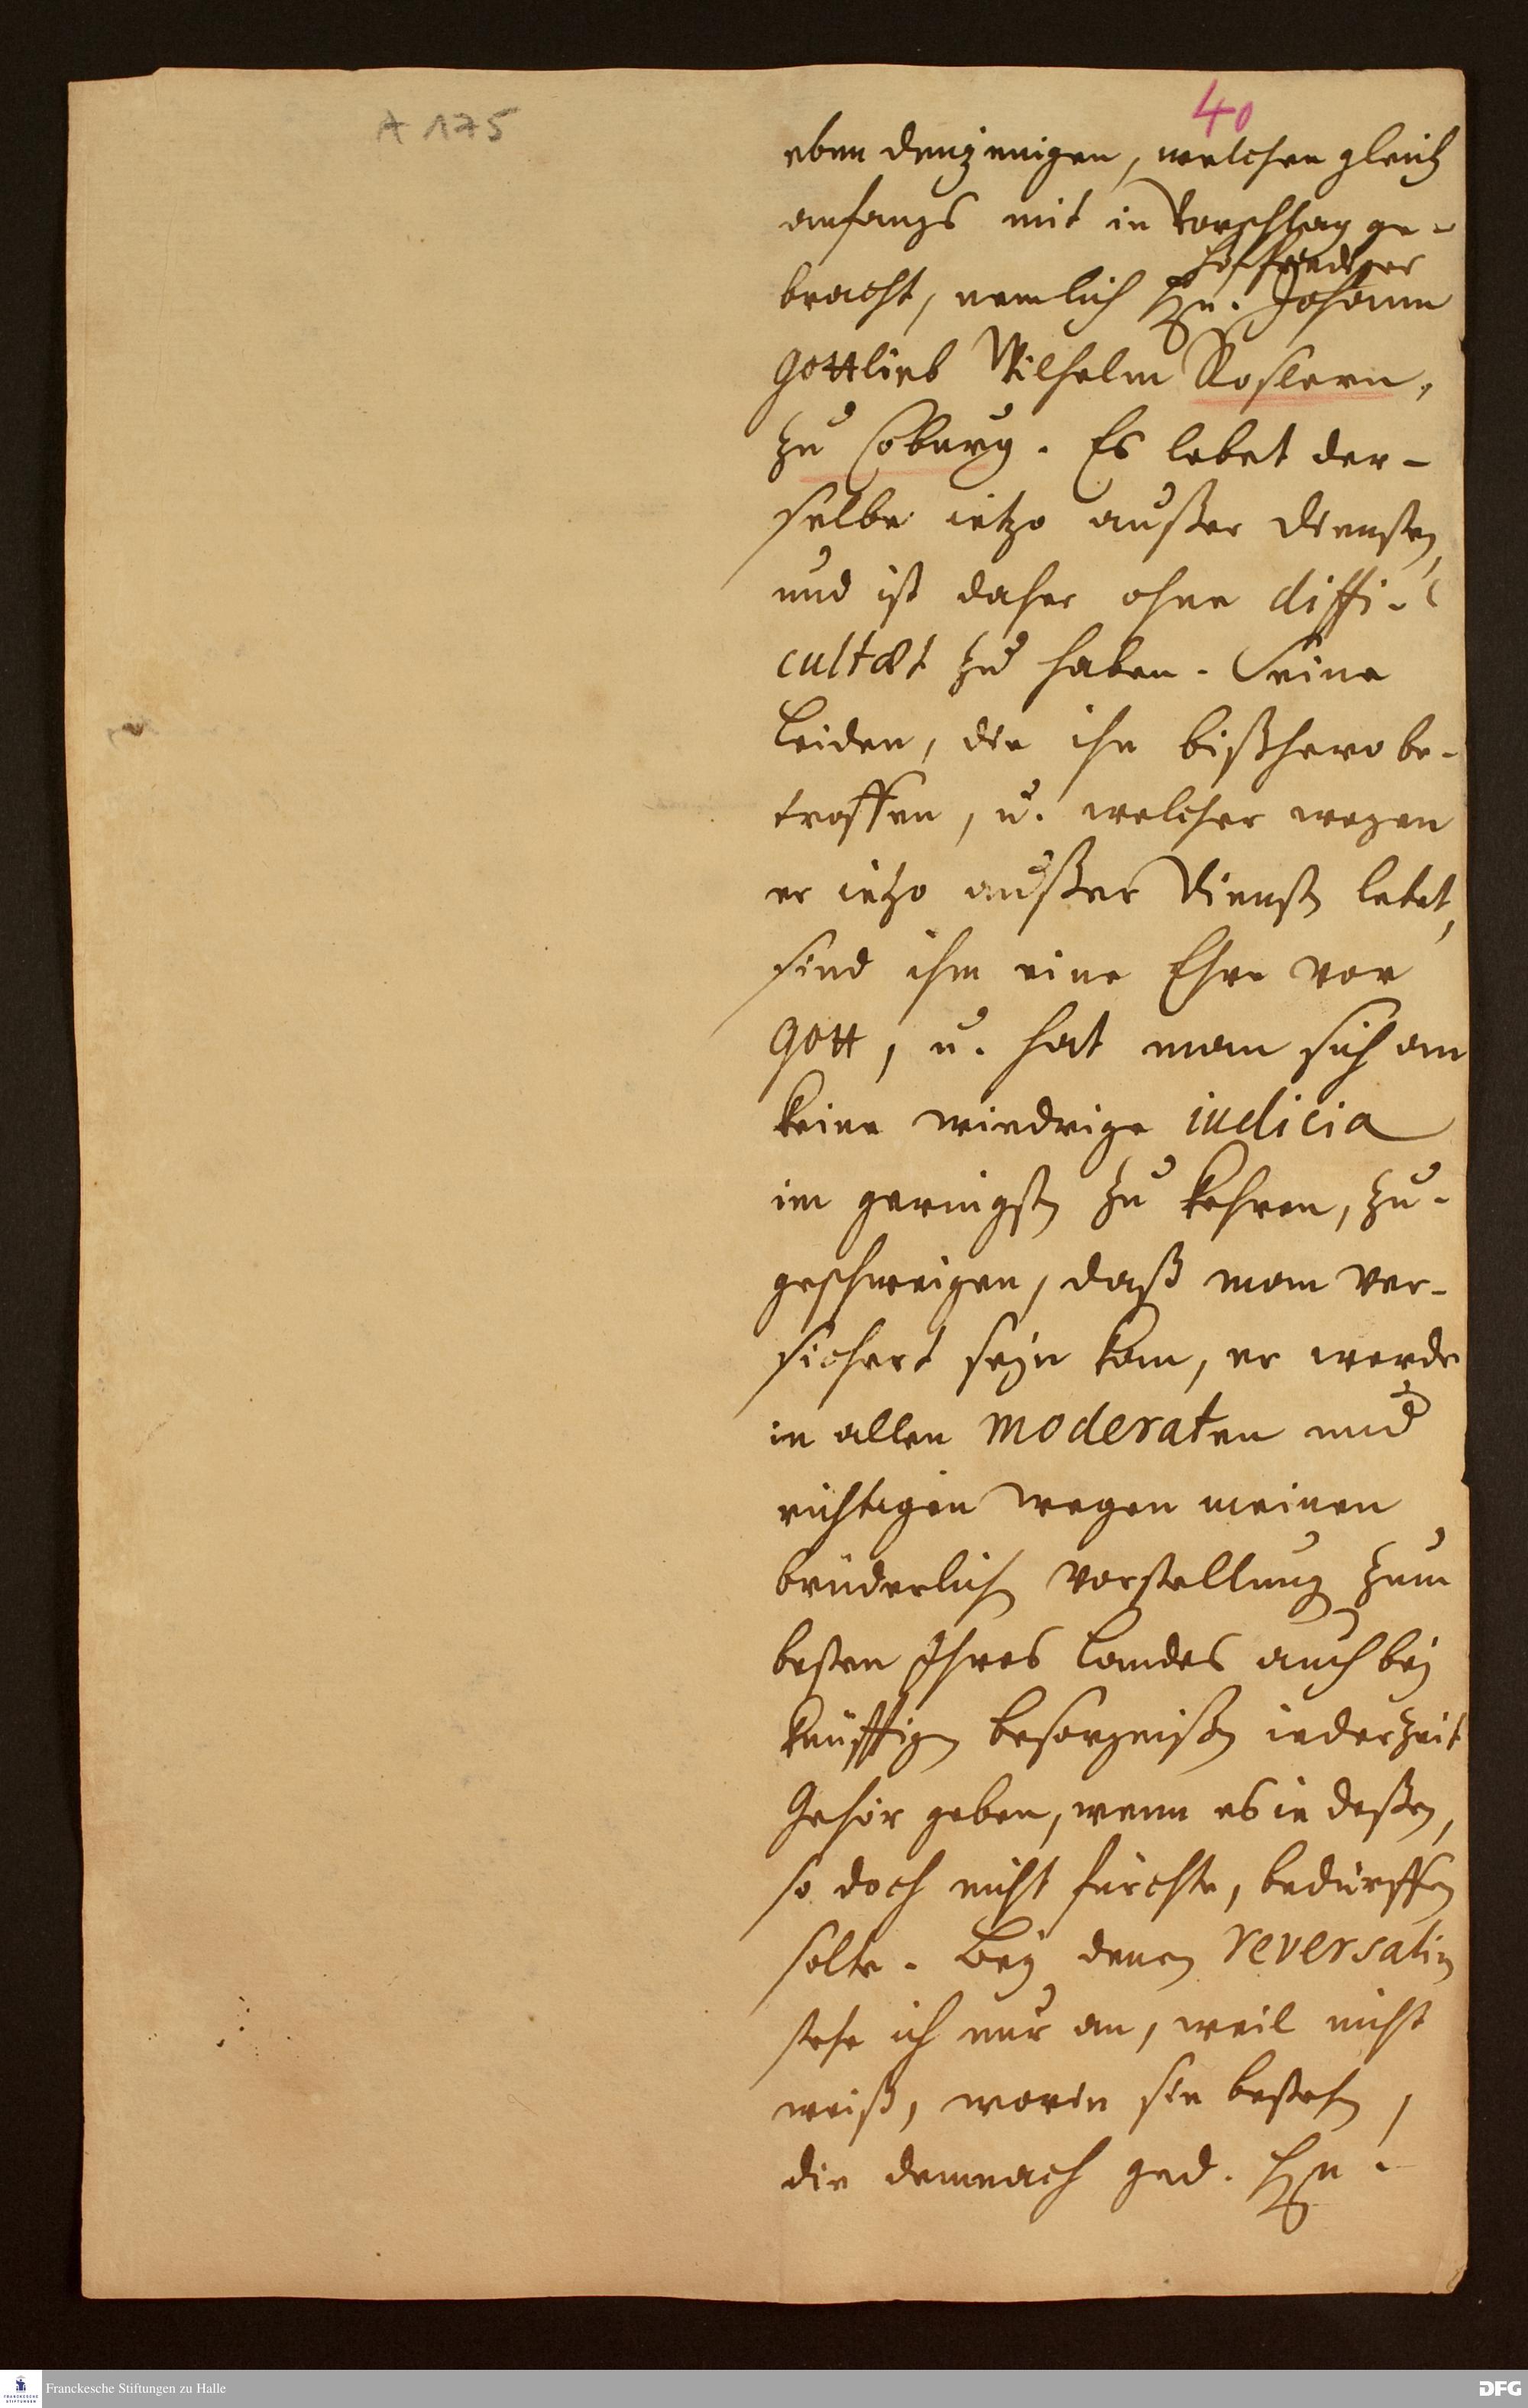 A 175
40
eben denjenigen, welchen gleich
anfangs mit in Vorschlag ge-
Hofprediger
bracht, nemlich Hn. Johann
Gottlieb Wilhelm Roslern,
zu Coburg. Es lebet der-
selbe ietzo außer Diensten,
und ist daher ohne diffi-
cultæt zu haben. Seine
Leiden, die ihn bißhero be-
troffen, u. welcher wegen
er ietzo außer Diensten lebet,
sind ihm eine Ehre vor
Gott, u. hat man sich an
keine wiedrige iudicia
im geringsten zu kehren, zu-
geschweigen, daß man ver-
sichert seyn kan, er werde
in allen moderaten und
richtigen wegen meinen
brüderlichen Vorstellungen zum
besten Ihres Landes auch bey
künfftigen besorgnißen iederzeit
Gehör geben, wenn es indeßen,
so doch nicht fürchte, bedürffen
solte. Bey denen reversalien
stehe ich nur an, weil nicht
weiß, worin sie bestehen,
die demnach ged. Hn.
Franckesche Stiftungen zu Halle
DFG